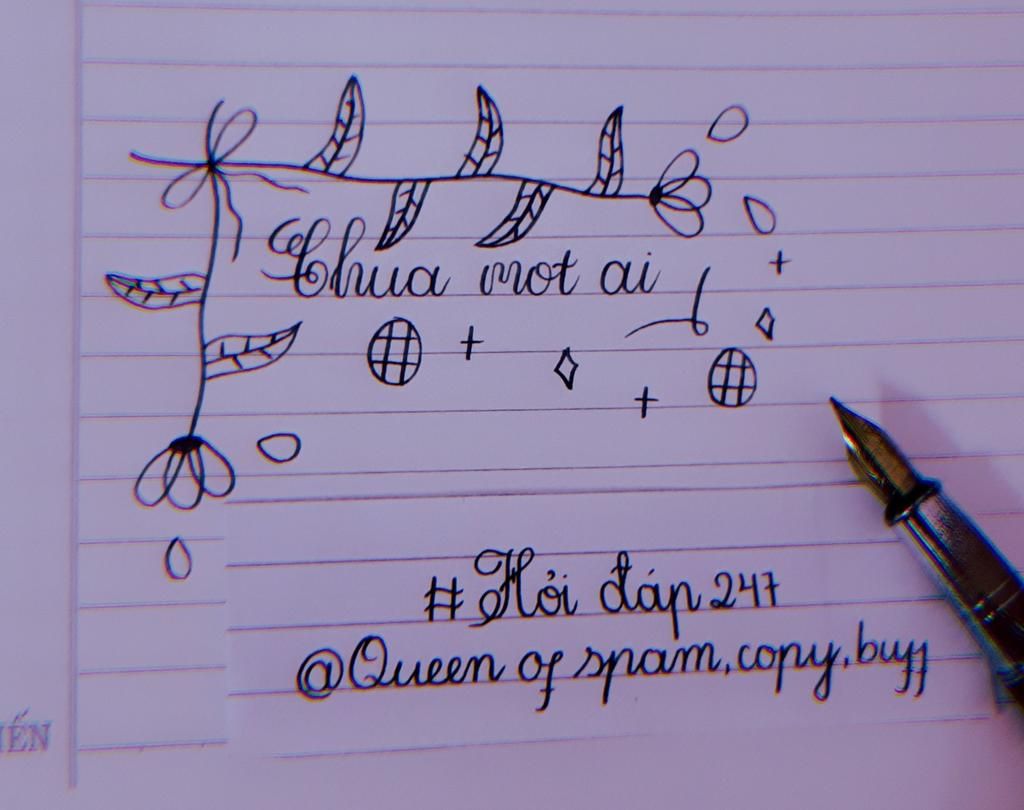 Chua mot ai
#Hỏi đáp 247
@Queen of spam,copy,buff
IẾN